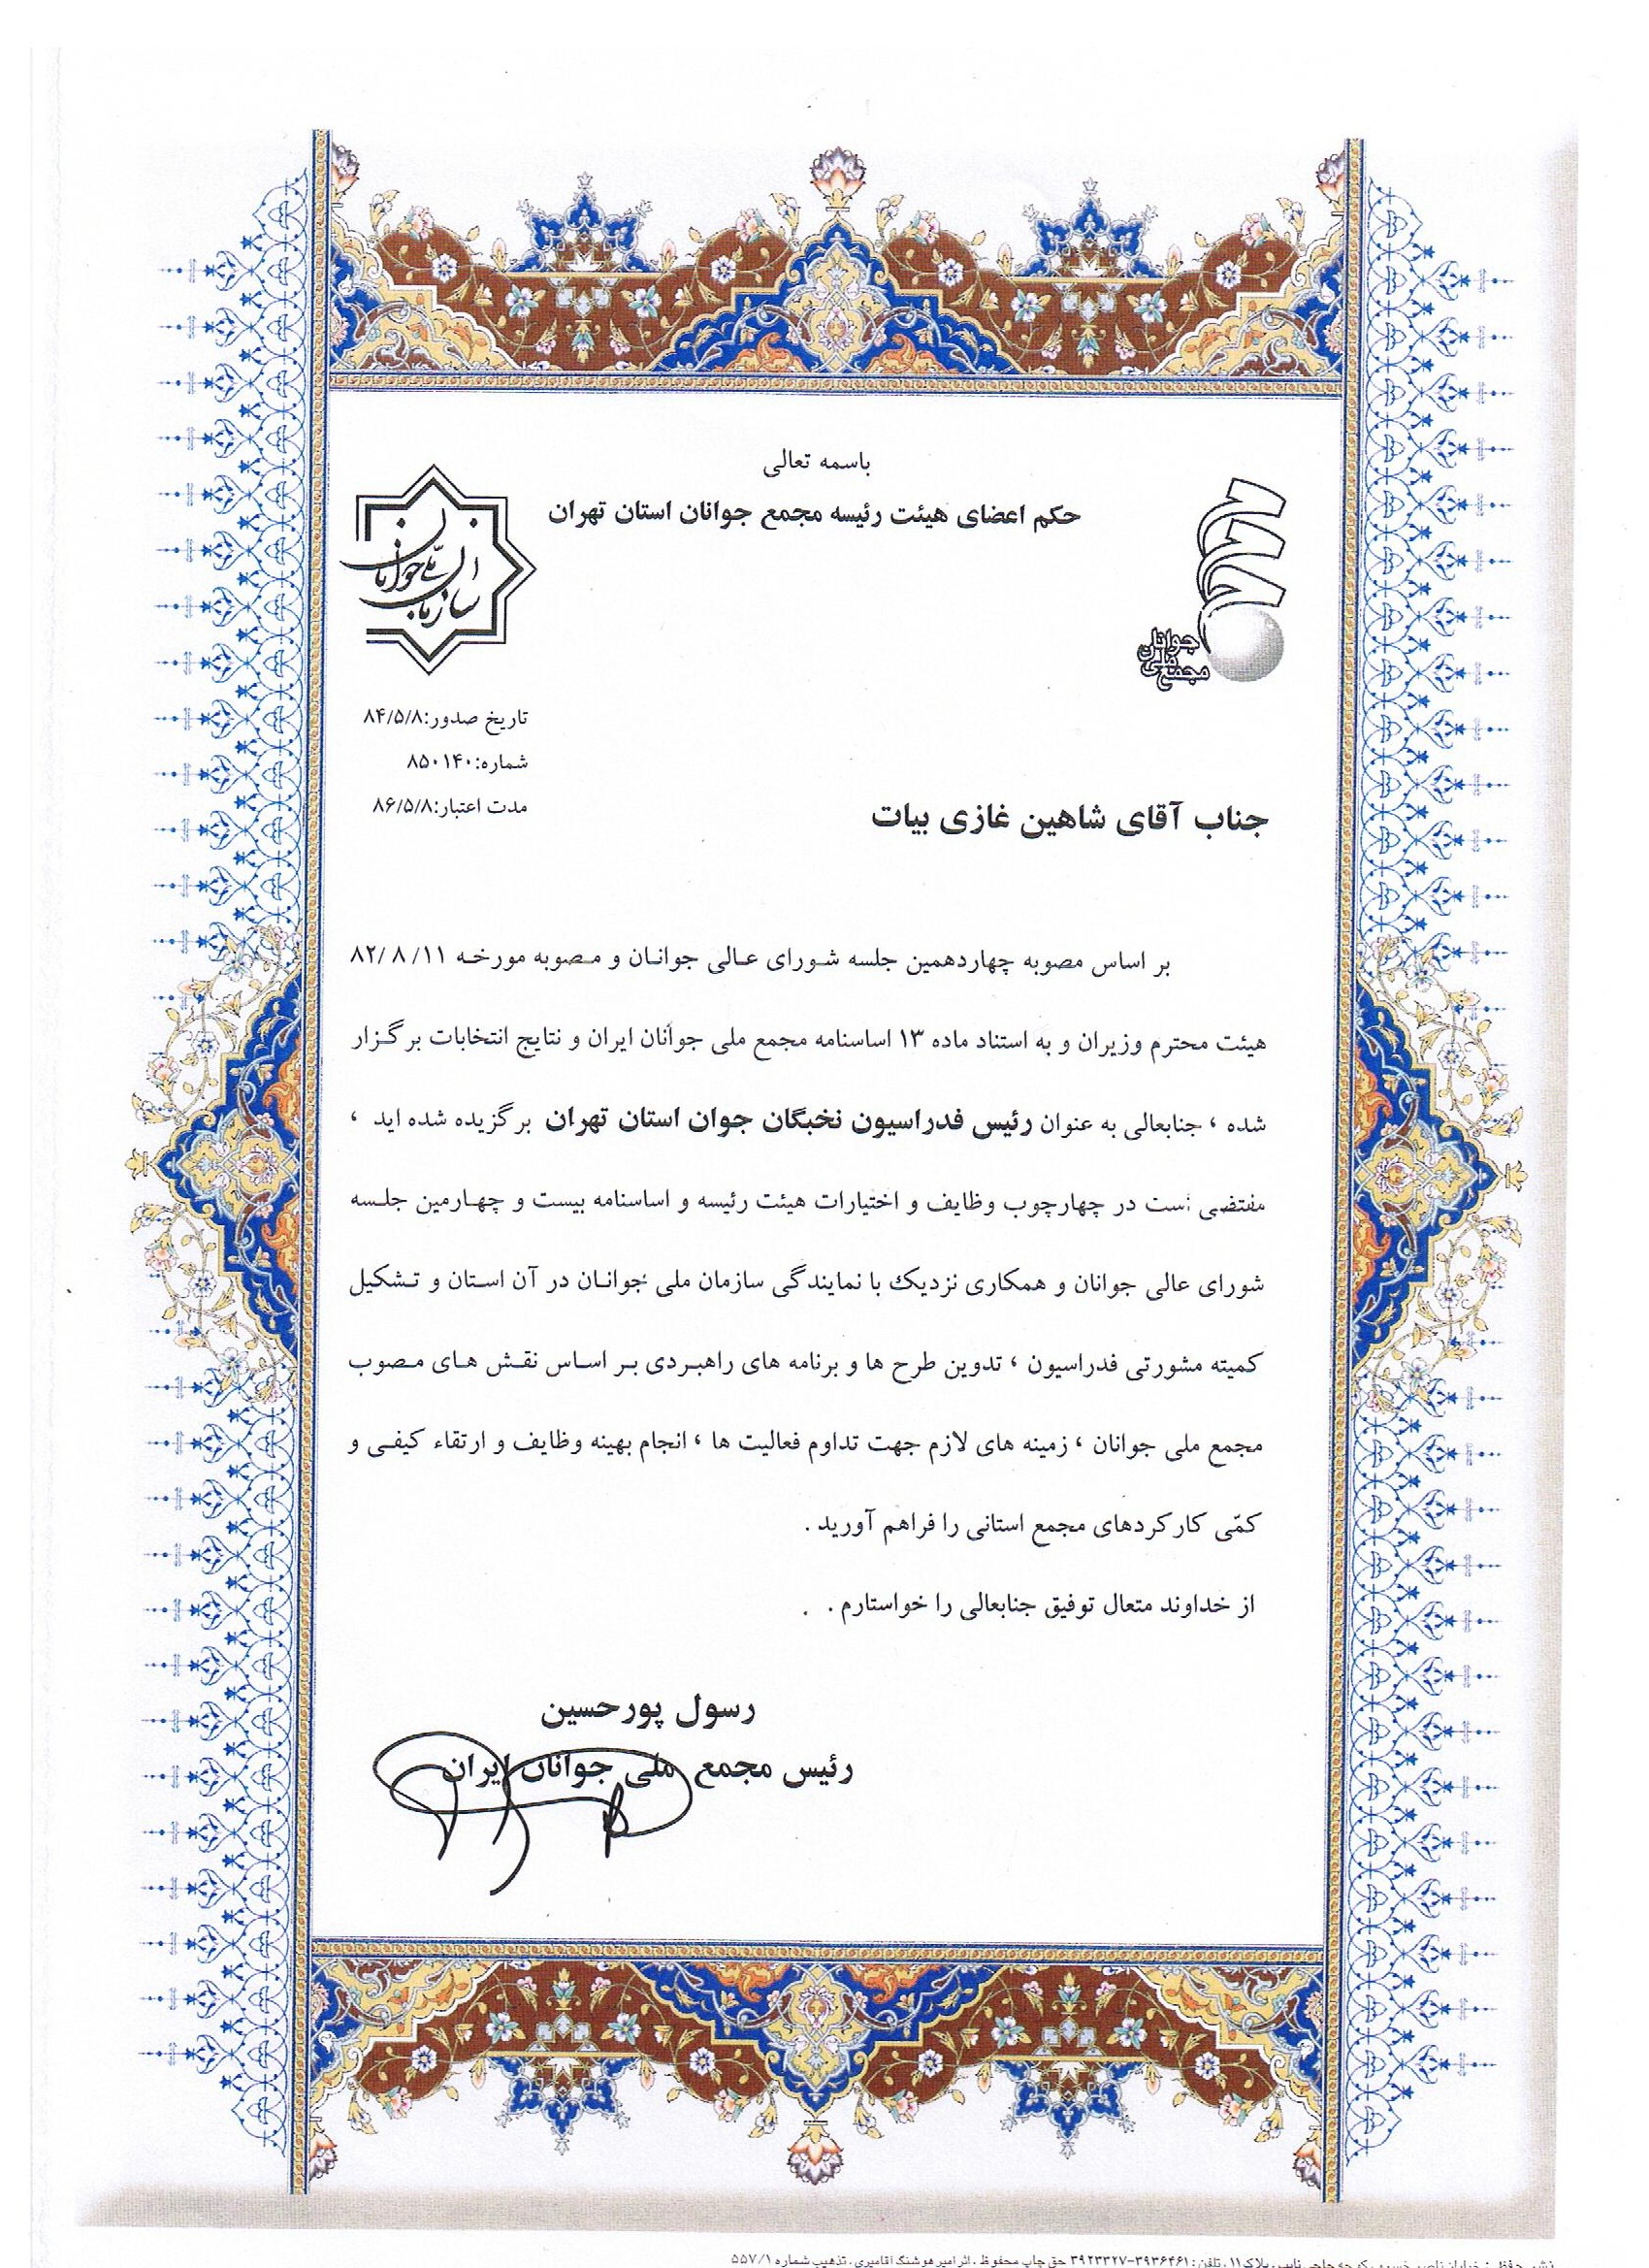 باسمه تعالی
حکم اعضای هیئت رئیسه مجمع جوانان استان تهران
سازمان ملی جوانان
جوانان
ملی
مجمع
تاریخ صدور:۸۴/۵/۸
شماره:۸۵۰۱۴۰
مدت اعتبار:۸۶/۵/۸
جناب آقای شاهین غازی بیات
بر اساس مصوبه چهاردهمین جلسه شورای عالی جوانان و مصوبه مورخه ۱۱/ ۸ /۸۲
هیئت محترم وزیران و به استناد ماده ۱۳ اساسنامه مجمع ملی جوانان ایران و نتایج انتخابات برگزار
شده ، جنابعالی به عنوان رئیس فدراسیون نخبگان جوان استان تهران برگزیده شده اید ،
مقتضی است در چهارچوب وظایف و اختیارات هیئت رئیسه و اساسنامه بیست و چهارمین جلسه
شورای عالی جوانان و همکاری نزدیک با نمایندگی سازمان ملی جوانان در آن استان و تشکیل
کمیته مشورتی فدراسیون ، تدوین طرح ها و برنامه های راهبردی بر اساس نقش های مصوب
مجمع ملی جوانان ، زمینه های لازم جهت تداوم فعالیت ها ، انجام بهینه وظایف و ارتقاء کیفی و
کمّی کارکردهای مجمع استانی را فراهم آورید .
از خداوند متعال توفیق جنابعالی را خواستارم .
رسول پورحسین
رئیس مجمع ملی جوانان ایران
پلاک ۱۱ ، تلفن : ۳۹۳۶۴۶۱-۳۹۲۳۳۲۷ حق چاپ محفوظ ، اثر امیرهوشنگ آقامیری ، تذهیب شماره ۵۵۷/۱